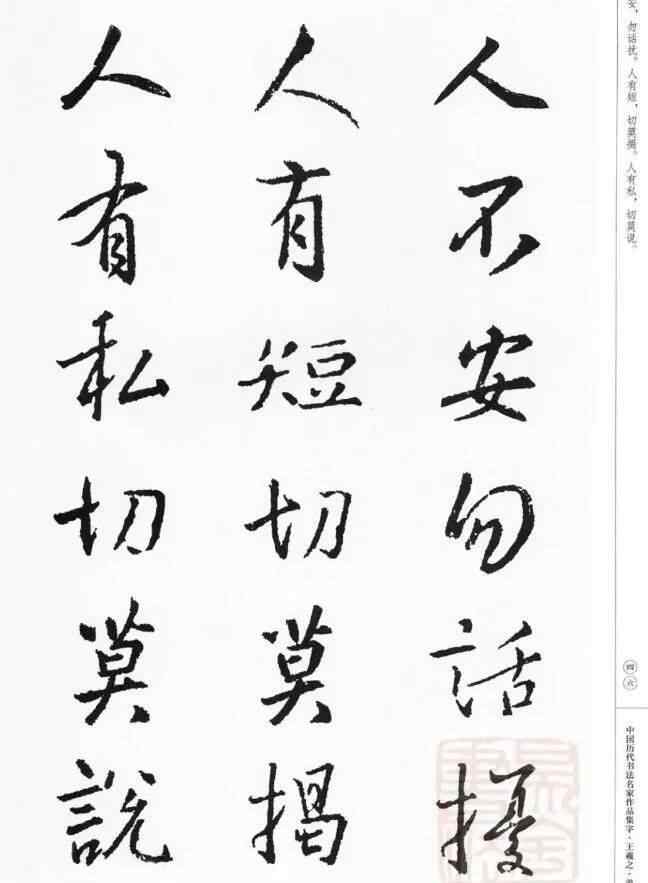 人不安勿話擾
人有短切莫揭
人有私切莫說
安，勿话扰。人有短，切莫揭。人有私，切莫说。
四六
中国历代书法名家作品集字·王羲之·